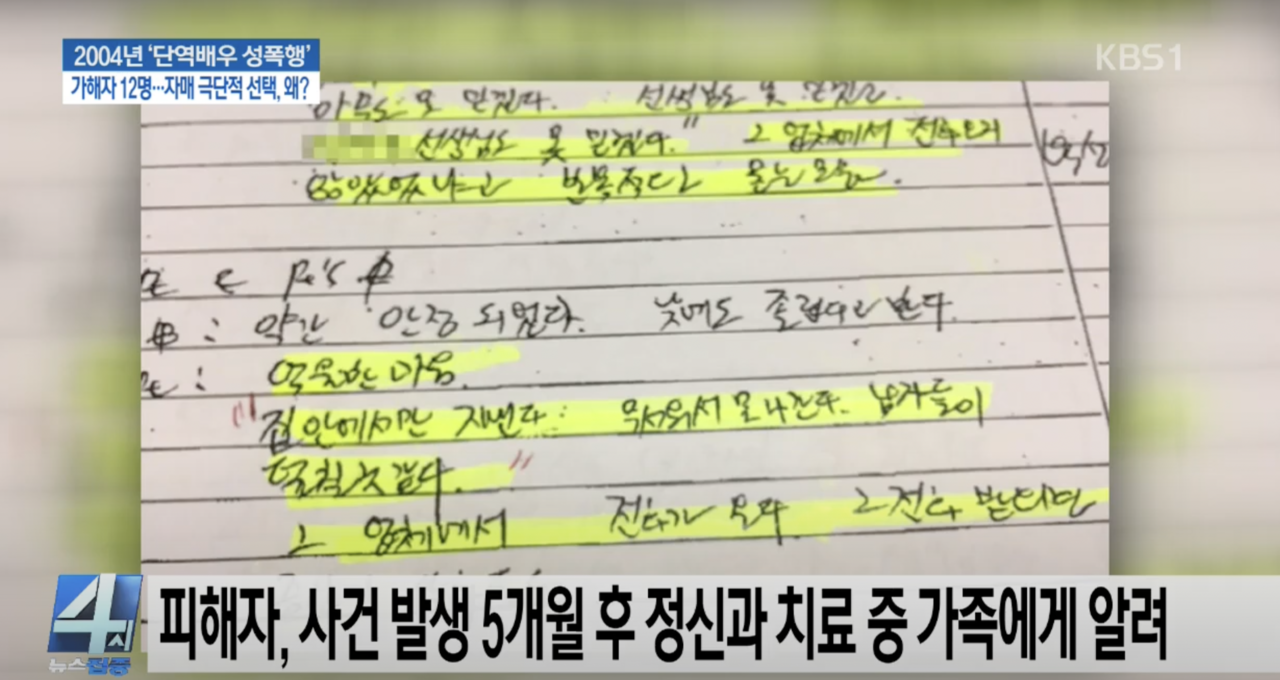 2004년 ‘단역배우 성폭행’
가해자 12명…자매 극단적 선택, 왜?
KBS1
아무도 못 믿겠다. 선생님도 못 믿겠고.
선생님도 못 믿겠다." 그 업체에서 전화
반복적으로 묻는 모습.
약간 안정 되었다. 낮에도 졸립다고 한다.
억울한 마음.
"집안에서만 지낸다. 무서워서 못 나간다. 남자들이
덮칠 것 같다."
그 업체에서 전화가 온다 그 전화 받더니만
4시
뉴스집중
피해자, 사건 발생 5개월 후 정신과 치료 중 가족에게 알려